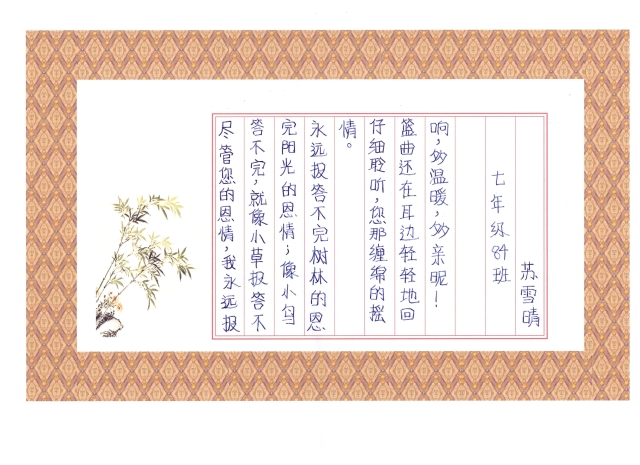 尽管您的恩情，我永远报
答不完，就像小草报答不
完阳光的恩情；像小鸟
永远报答不完树林的恩
情。
仔细聆听，您那缠绵的摇
篮曲还在耳边轻轻地回
响，多温暖，多亲昵！
七年级84班
苏雪晴